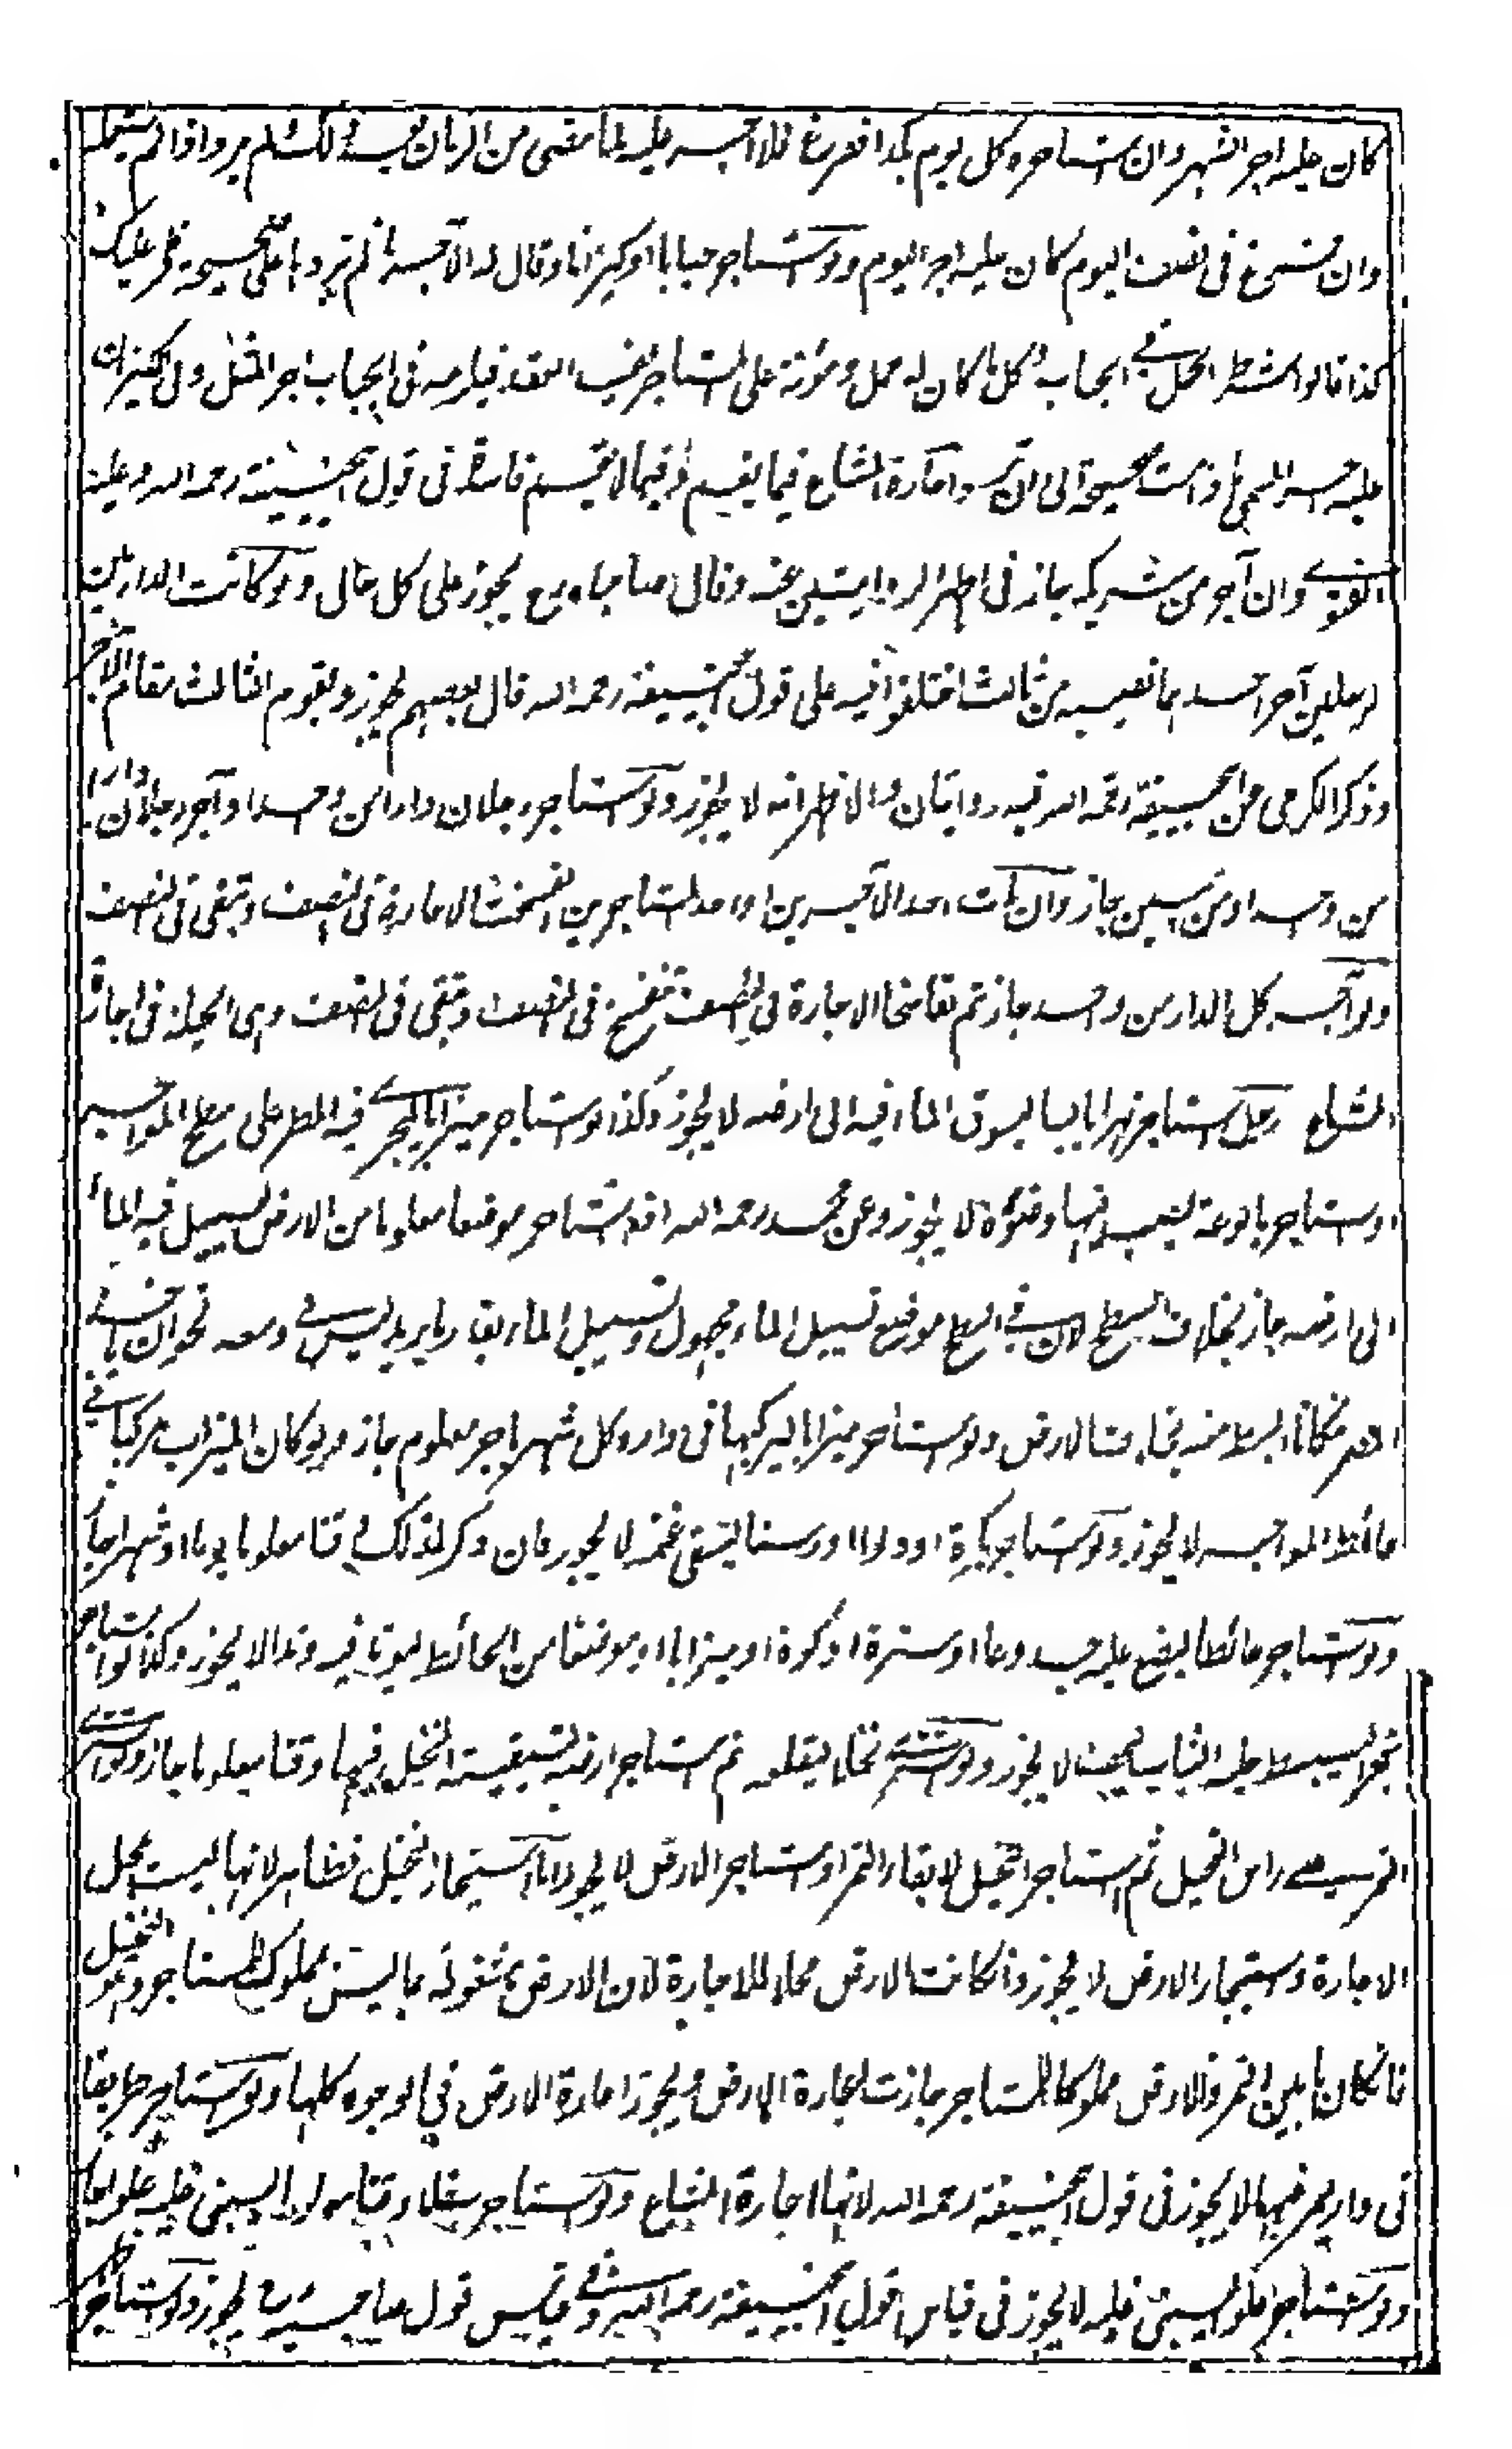 كان عليه اجر الشهر وان استاجره كل يوم بكذا ففرغ فلا اجر عليه لما مضى من الزمان بعد ذلك سلم يرد اذا لم يستعمله
وان فسرغ فى نصف اليوم كان عليه اجر اليوم ولو استاجر حبابا او كيزانا وقال له الآجر ان لم تردها على صحيحة فلى عليك
كذا قالوا شرط الحمل فى الحباب وكل ما كان له حمل ومؤنة على المستاجر يفسد العقد فيلزمه فى الحباب اجر المثل وفى الكيزان
عليه اجر المسمى ما دامت صحيحة الى ان واجارة المشاع فيما يقسم وفيما لا يقسم فاسدة فى قول ابى حنيفة رحمه الله وعليه
الفتوى وان آجر من شريكه جاز فى اظهر الروايتين عنه وقال صاحباه رح يجوز على كل حال ولو كانت الدار بين
رجلين آجر احدهما نصيبه من ثالث اختلفوا فيه على قول ابى حنيفة رحمه الله قال بعضهم يجوز ويقوم الثالث مقام الآجر
وذكر الكرخى عن ابى حنيفة رحمه الله فيه روايتان والاظهر انه لا يجوز ولو استاجر رجلان دارا من واحد او آجر رجلان دارا
من واحد او من اثنين جاز وان مات احد الآجرين او احد المستاجرين انفسخت الاجارة فى النصف وتبقى فى النصف
ولو آجر كل الدار من واحد جاز ثم تفاسخا الاجارة فى النصف تنفسخ فى النصف وتبقى فى النصف وهى الحيلة فى اجارة
المشاع رجل استاجر نهرا يابسا ليسوق الماء فيه الى ارضه لا يجوز وكذا لو استاجر ميزابا ليجرى فيه المطر على سطح المواجر
او استاجر بالوعة ليصب فيها وضوءه لا يجوز وعن محمد رحمه الله اذا استاجر موضعا معلوما من الارض ليسيل فيه الماء
الى ارضه جاز بخلاف السطح لان فى السطح موضع تسييل الماء مجهول وتسييل الماء بقدر ما يريد ليس فى وسعه نحو ان ياخذ
اكثر مكانا من السطح منه بخلاف الارض ولو استاجر ميزابا ليركبها فى داره كل شهر باجر معلوم جاز ولو كان الميزاب مركبا فى
حائط المواجر لا يجوز ولو استاجر بكرة او دلوا او رسنا ليسقى غنمه لا يجوز فان ذكر لذلك وقتا معلوما يوما او شهرا جاز
ولو استاجر حائطا ليضع عليه جذوعا او سترة او كوة او ميزابا او موضعا من الحائط ليوتد فيه وتدا لا يجوز وكذا لو استاجر
شجرا ليبسط عليه الثياب ليجففها لا يجوز ولو اشترى نخلا ليقلعه ثم استاجر ارضه لتبقية النخل فيها وقتا معلوما جاز ولو اشترى
التمر على راس النخيل ثم استاجر النخيل لابقاء التمر او استاجر الارض لا يجوز اما استيجار النخيل فظاهر لانها ليست بمحل
الاجارة واستيجار الارض لا يجوز وان كانت الارض محلا للاجارة لان الارض مشغولة بما ليس بمملوك للمستاجر وهو النخيل
فان كان ما بين التمر والارض مملوكا للمستاجر جازت اجارة الارض ويجوز اعارة الارض فى الوجوه كلها ولو استاجر طريقا
فى دار ليمر فيها لا يجوز فى قول ابى حنيفة رحمه الله لانها اجارة المشاع ولو استاجر سفلا وقتا معلوما ليبنى عليه علوا جاز
ولو استاجر علوا ليبنى عليه لا يجوز فى قياس قول ابى حنيفة رحمه الله وفى قياس قول صاحبيه رح يجوز ولو استاجر